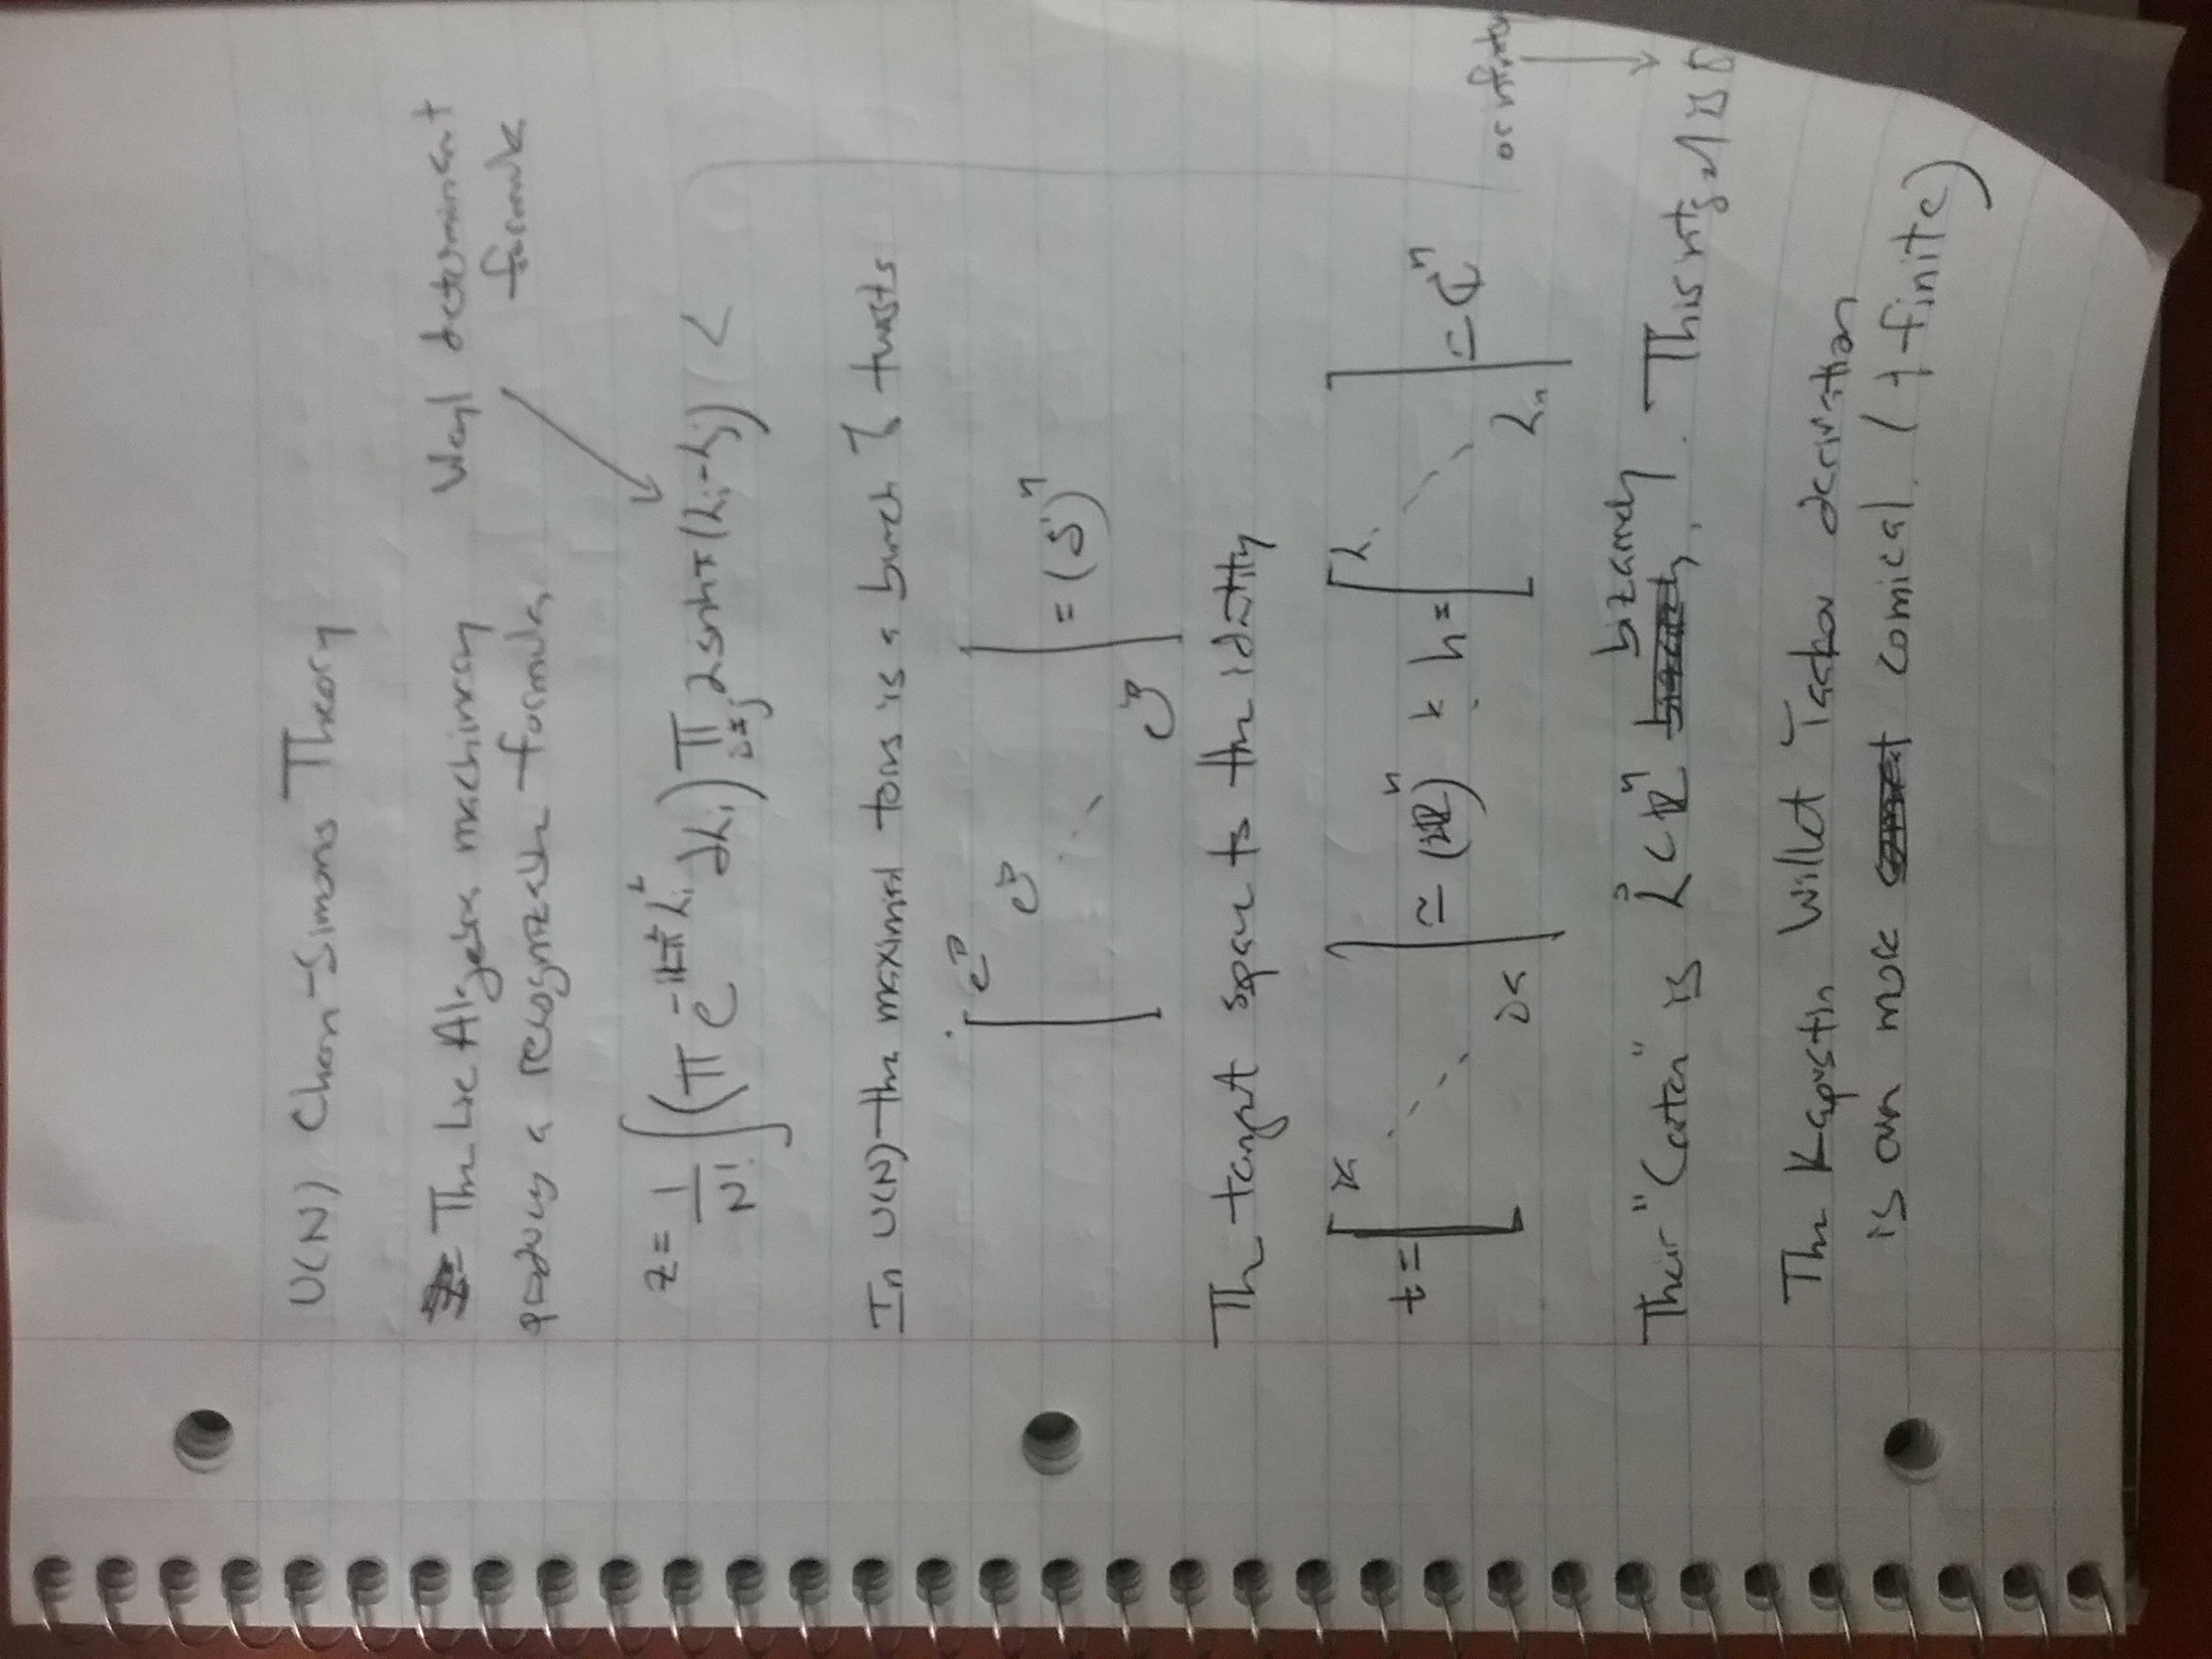 U(N) Chern-Simons Theory
The Lie Algebra machinery
produces a recognizable formula.
Weyl determinant
formula
Z = 1/N! ∫ (∏ e^{-ikπ λi²} dλi) ∏_{i≠j} 2 sinh π(λi-λj) <
In U(N) - the maximal torus is a bunch of twists
[ e^{iθ} e^{iθ} ⋱ e^{iθ} ] = (S¹)ⁿ
The tangent space to the identity
t = [ ix ⋱ ix ] ≃ (iℝ)ⁿ & h = [ λ1 ⋱ λn ] = ℂⁿ
or infinite
Their "Cartan" is λ ∈ ℝⁿ bizarrely. This integral is 0
The Kapustin Willet Yaakov derivation
is an more comical. (+ finite)